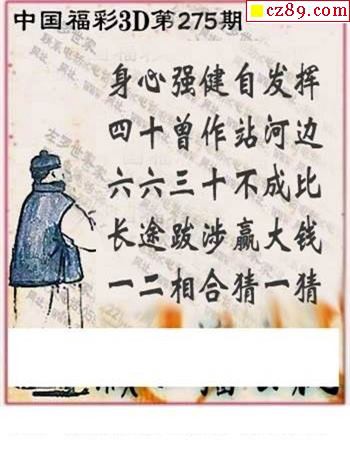 cz89.com
中国福彩3D第275期
身心强健自发挥
四十曾作站河边
六六三十不成比
长途跋涉赢大钱
一二相合猜一猜